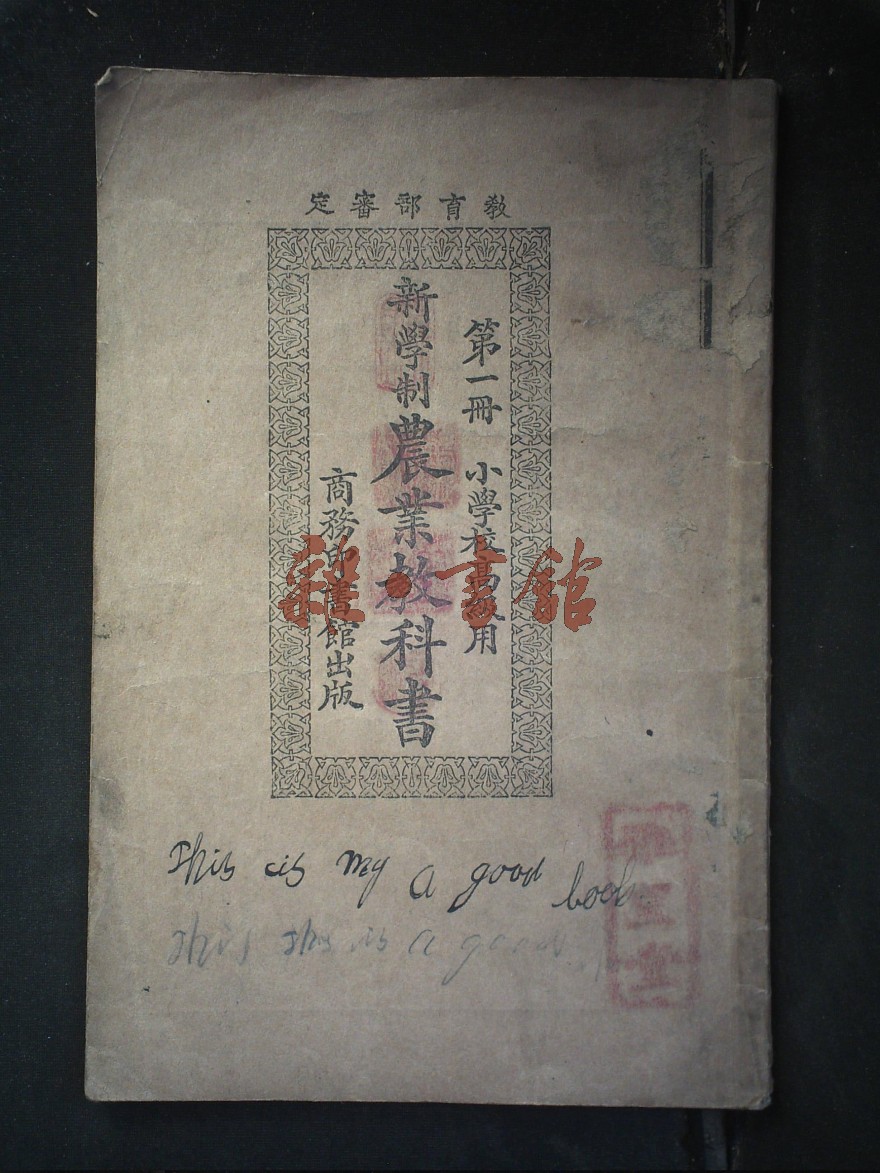 教育部審定
第一冊 小學校高級用
新學制農業教科書
商務印書館出版
雜·書館
This is my a good book.
This This is a good